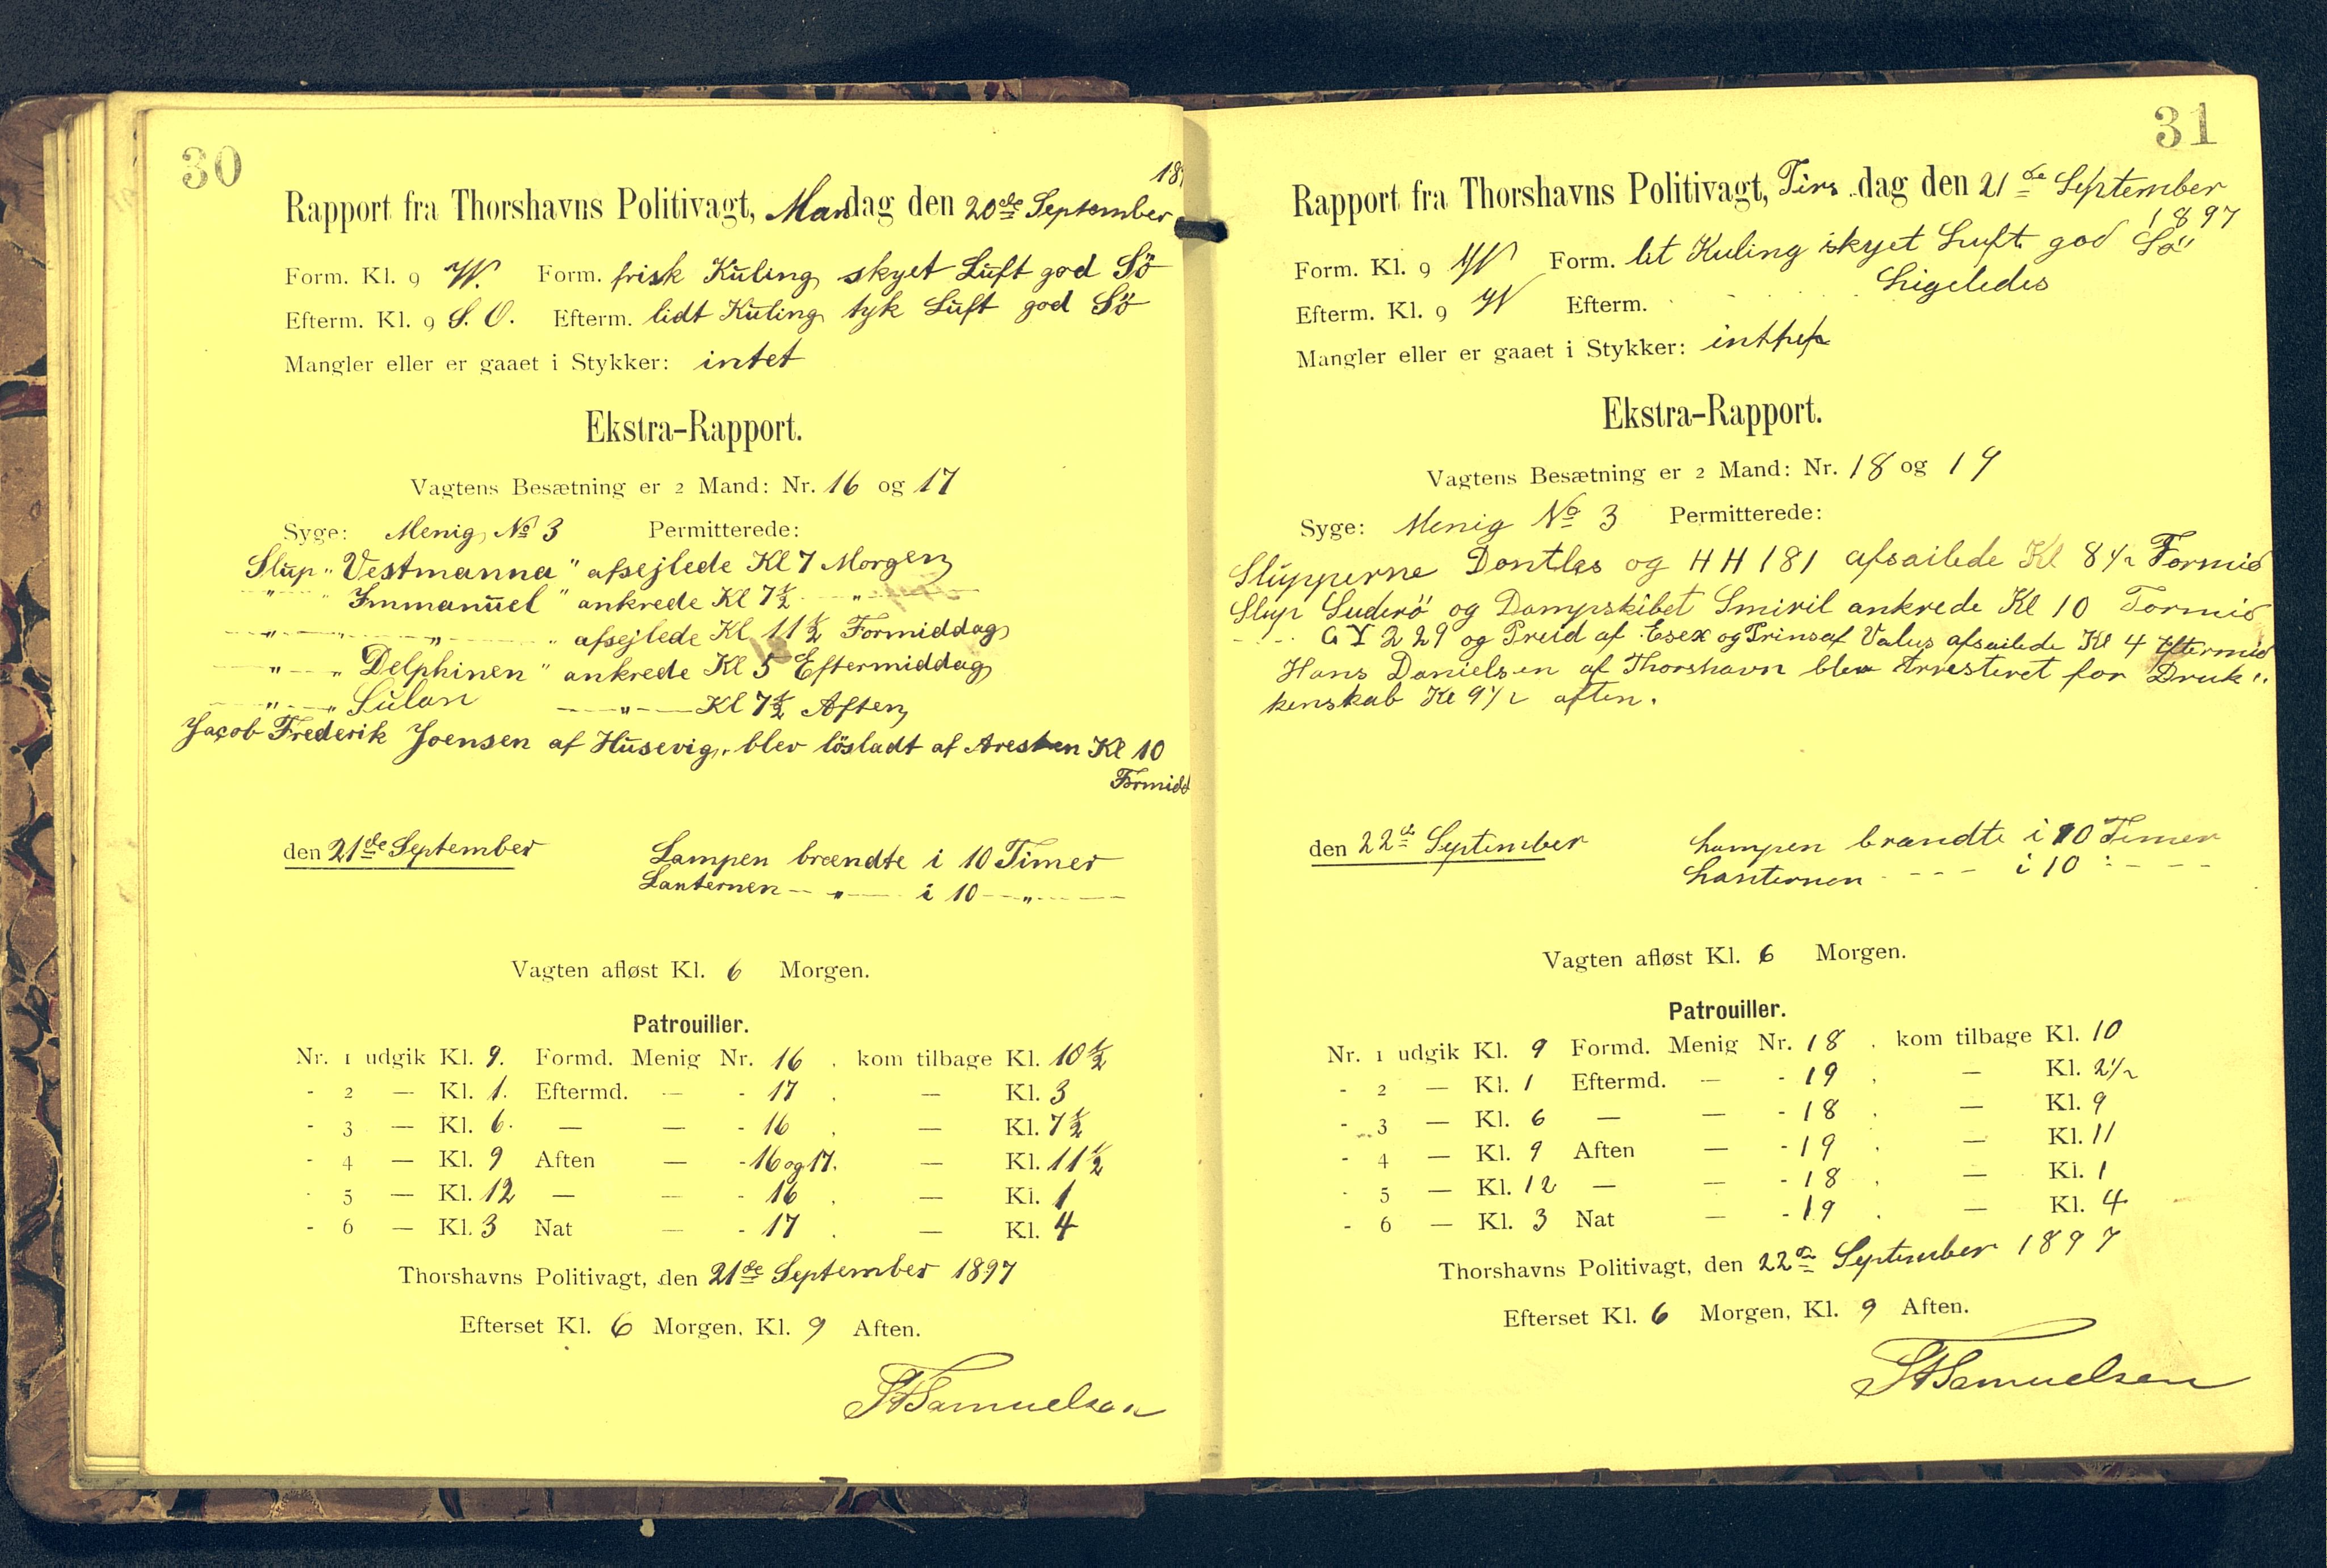 30
189
Rapport fra Thorshavns Politivagt, Mandag den 20de September
Form. Kl. 9 W. Form. frisk Kuling skyet Luft god Sö
Efterm. Kl. 9 S. O. Efterm. lidt Kuling tyk Luft god Sö
Mangler eller er gaaet i Stykker: intet
Ekstra-Rapport.
Vagtens Besætning er 2 Mand: Nr. 16 og 17
Syge: Menig No 3 Permitterede:
Slup „Vestmanna" afsejlede Kl 7 Morgen
" " Immanuel " ankrede Kl 7½ "
" " " " afsejlede Kl 11½ Formiddag
" — " Delphinen " ankrede Kl 5 Eftermiddag
" — " Sulan — " — Kl 7½ Aften
Jacob Frederik Joensen af Husevig, blev lösladt af Aresten Kl 10
Formidd
den 21de September Lampen brændte i 10 Timer
Lanternen — " — i 10 — " —
Vagten afløst Kl. 6 Morgen.
Patrouiller.
Nr. 1 udgik Kl. 9. Formd. Menig Nr. 16 . kom tilbage Kl. 10½
- 2 — Kl. 1. Eftermd. — - 17 . — Kl. 3
- 3 — Kl. 6. — — - 16 . — Kl. 7½
- 4 — Kl. 9 Aften — - 16 og 17. — Kl. 11½
- 5 — Kl. 12 — — - 16 . — Kl. 1
- 6 — Kl. 3 Nat — - 17 . — Kl. 4
Thorshavns Politivagt, den 21de September 1897
Efterset Kl. 6 Morgen, Kl. 9 Aften.
Samuelsen
31
Rapport fra Thorshavns Politivagt, Tirsdag den 21de September
1897
Form. Kl. 9 W Form. let Kuling skyet Luft god Sö
Efterm. Kl. 9 W Efterm. Ligeledes
Mangler eller er gaaet i Stykker:
Ekstra-Rapport.
Vagtens Besætning er 2 Mand: Nr. 18 og 19
Syge: Menig No 3 Permitterede:
Slupperne Dontles og HH 181 afsailede Kl 8½ Formid
Slup Suderö og Dampskibet Smiril ankrede Kl 10 Formid
GY 229 og Preid af Esex og Prins af Valus afsailede Kl 4 Eftermid
Hans Danielsen af Thorshavn blev Arresteret for Druk„
kenskab Kl 9½ aften.
den 22de September Lampen brændte i 10 Timer
Lanternen - - - - i 10 : - - -
Vagten afløst Kl. 6 Morgen.
Patrouiller.
Nr. 1 udgik Kl. 9 Formd. Menig Nr. 18 . kom tilbage Kl. 10
- 2 — Kl. 1 Eftermd. — - 19 . — Kl. 2½
- 3 — Kl. 6 — — - 18 . — Kl. 9
- 4 — Kl. 9 Aften — - 19 . — Kl. 11
- 5 — Kl. 12 — — - 18 . — Kl. 1
- 6 — Kl. 3 Nat — - 19 . — Kl. 4
Thorshavns Politivagt, den 22de September 1897
Efterset Kl. 6 Morgen, Kl. 9 Aften.
Samuelsen